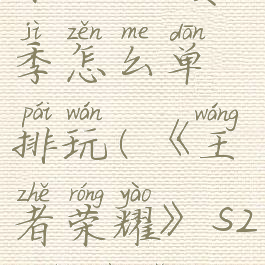 jì zěn me dān
季怎么单
pái wán wáng
排玩(《王
zhě róng yào
者荣耀》S2